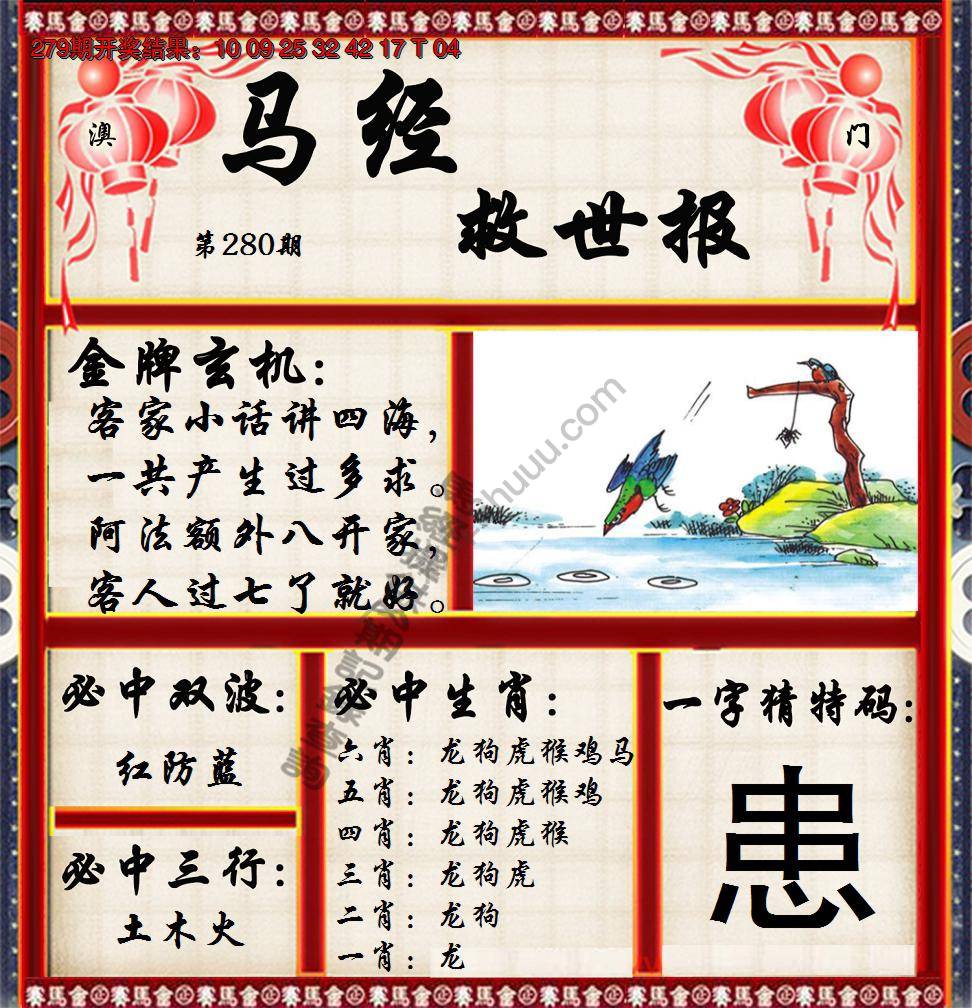 279期开奖结果：10 09 25 32 42 17 T 04
澳
门
马经
救世报
第280期
金牌玄机：
客家小话讲四海，
一共产生过多求。
阿法额外八开家，
客人过七了就好。
必中双波：
红防蓝
必中三行：
土木火
必中生肖：
六肖：龙狗虎猴鸡马
五肖：龙狗虎猴鸡
四肖：龙狗虎猴
三肖：龙狗虎
二肖：龙狗
一肖：龙
一字猜特码：
患